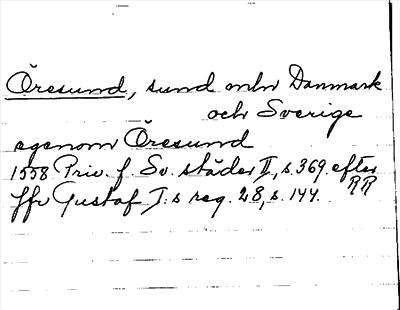 Öresund, sund mln Danmark
och Sverige
egenom Öresund
1558 Priv. f. Sv. städer II, s. 369. efter
RR
jfr Gustaf I:s reg. 28, s. 144.